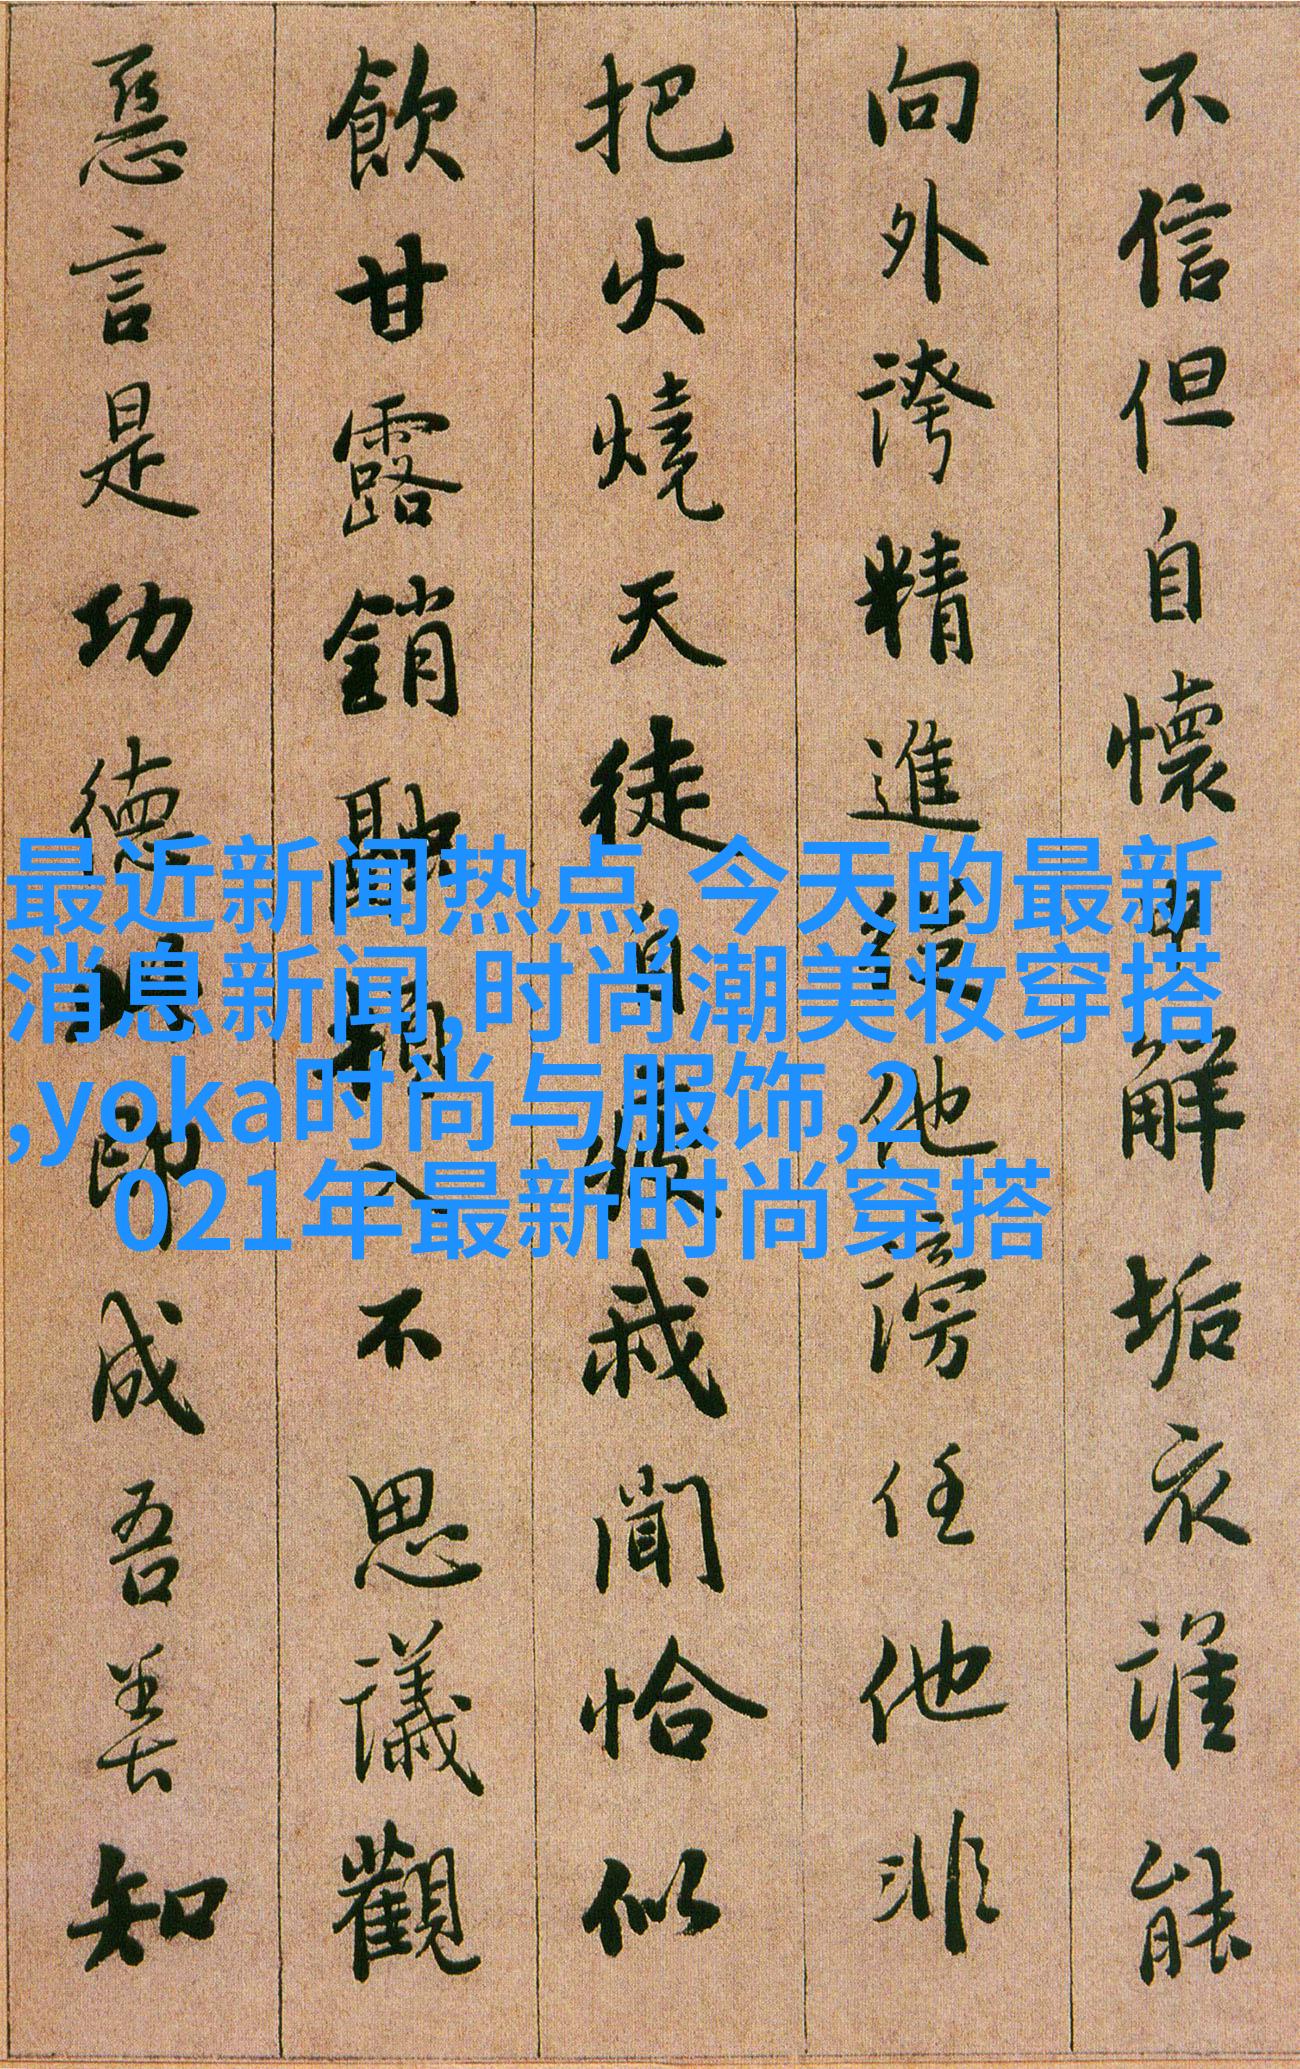 不信但自懷中解垢衣誰能
向外誇精進從他謗任他非
把火燒天徒自疲我聞恰似
飲甘露銷融頓入不思議觀
惡言是功德此即成吾善知
最近新闻热点,今天的最新
消息新闻,时尚潮美妆穿搭
,yoka时尚与服饰,2
021年最新时尚穿搭